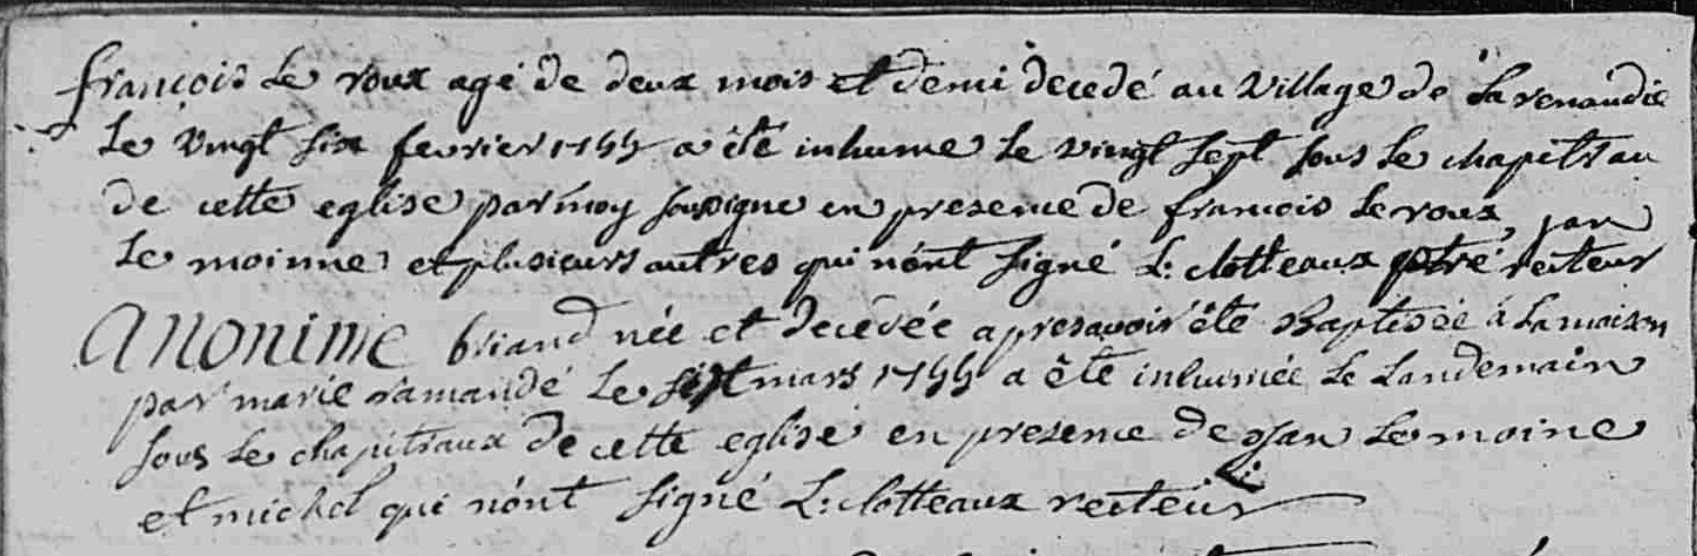 françois Le roux agé de deux mois et demi decedé au village de La renaudie
Le vingt six fevrier 1755 a êté inhumé Le vingt sept sous Le chapitrau
de cette eglise par moy soussigne en presence de françois Le roux, jan
Le moinne et plusieurs autres qui nónt signé L: clotteaux ptré recteur
Anonime briand née et decedée apres avoir êté Baptisée á La maison
par marie ramaudé Le six mars 1755 a êté inhumée Le Landemain
sous Le chapitraux de cette eglise en presence de jan Le moine
et michel qui nónt signé L: clotteaux recteur